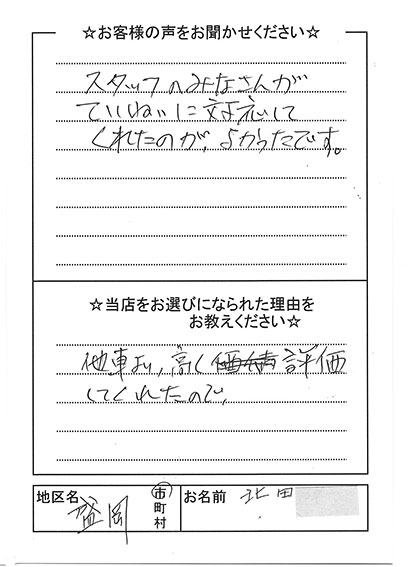 ☆お客様の声をお聞かせください☆
スタッフのみなさんが
ていねいに対応して
くれたのが、よかったです。
☆当店をお選びになられた理由を
お教えください☆
他車より、高く 評価
してくれたので、
地区名 盛岡 市町村 お名前 北田